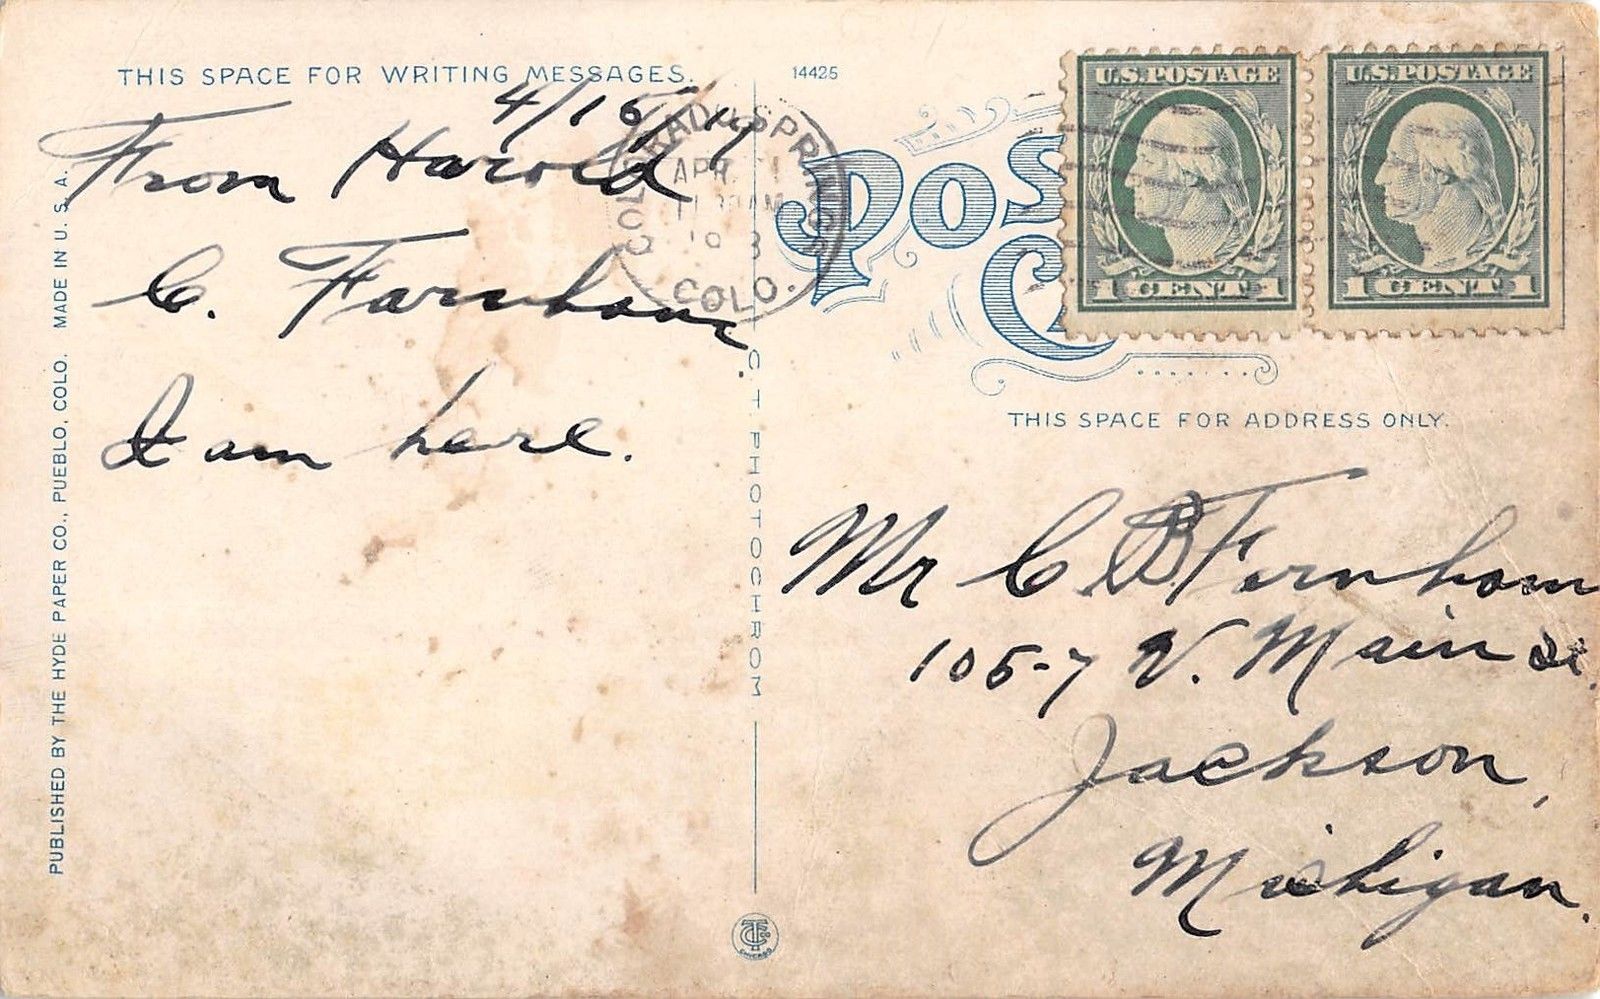 THIS SPACE FOR WRITING MESSAGES.
4/16/
From Harold
C. Farnham.
I am here.
PUBLISHED BY THE HYDE PAPER CO., PUEBLO, COLO. MADE IN U. S. A.
C. T. PHOTOCHROM
14425
COLORADO SPRINGS
APR
COLO.
POST
U.S. POSTAGE
1 CENT 1
U.S. POSTAGE
1 CENT 1
THIS SPACE FOR ADDRESS ONLY.
Mr C. B. Farnham
105-7 W. Main St.
Jackson,
Michigan.
CHICAGO